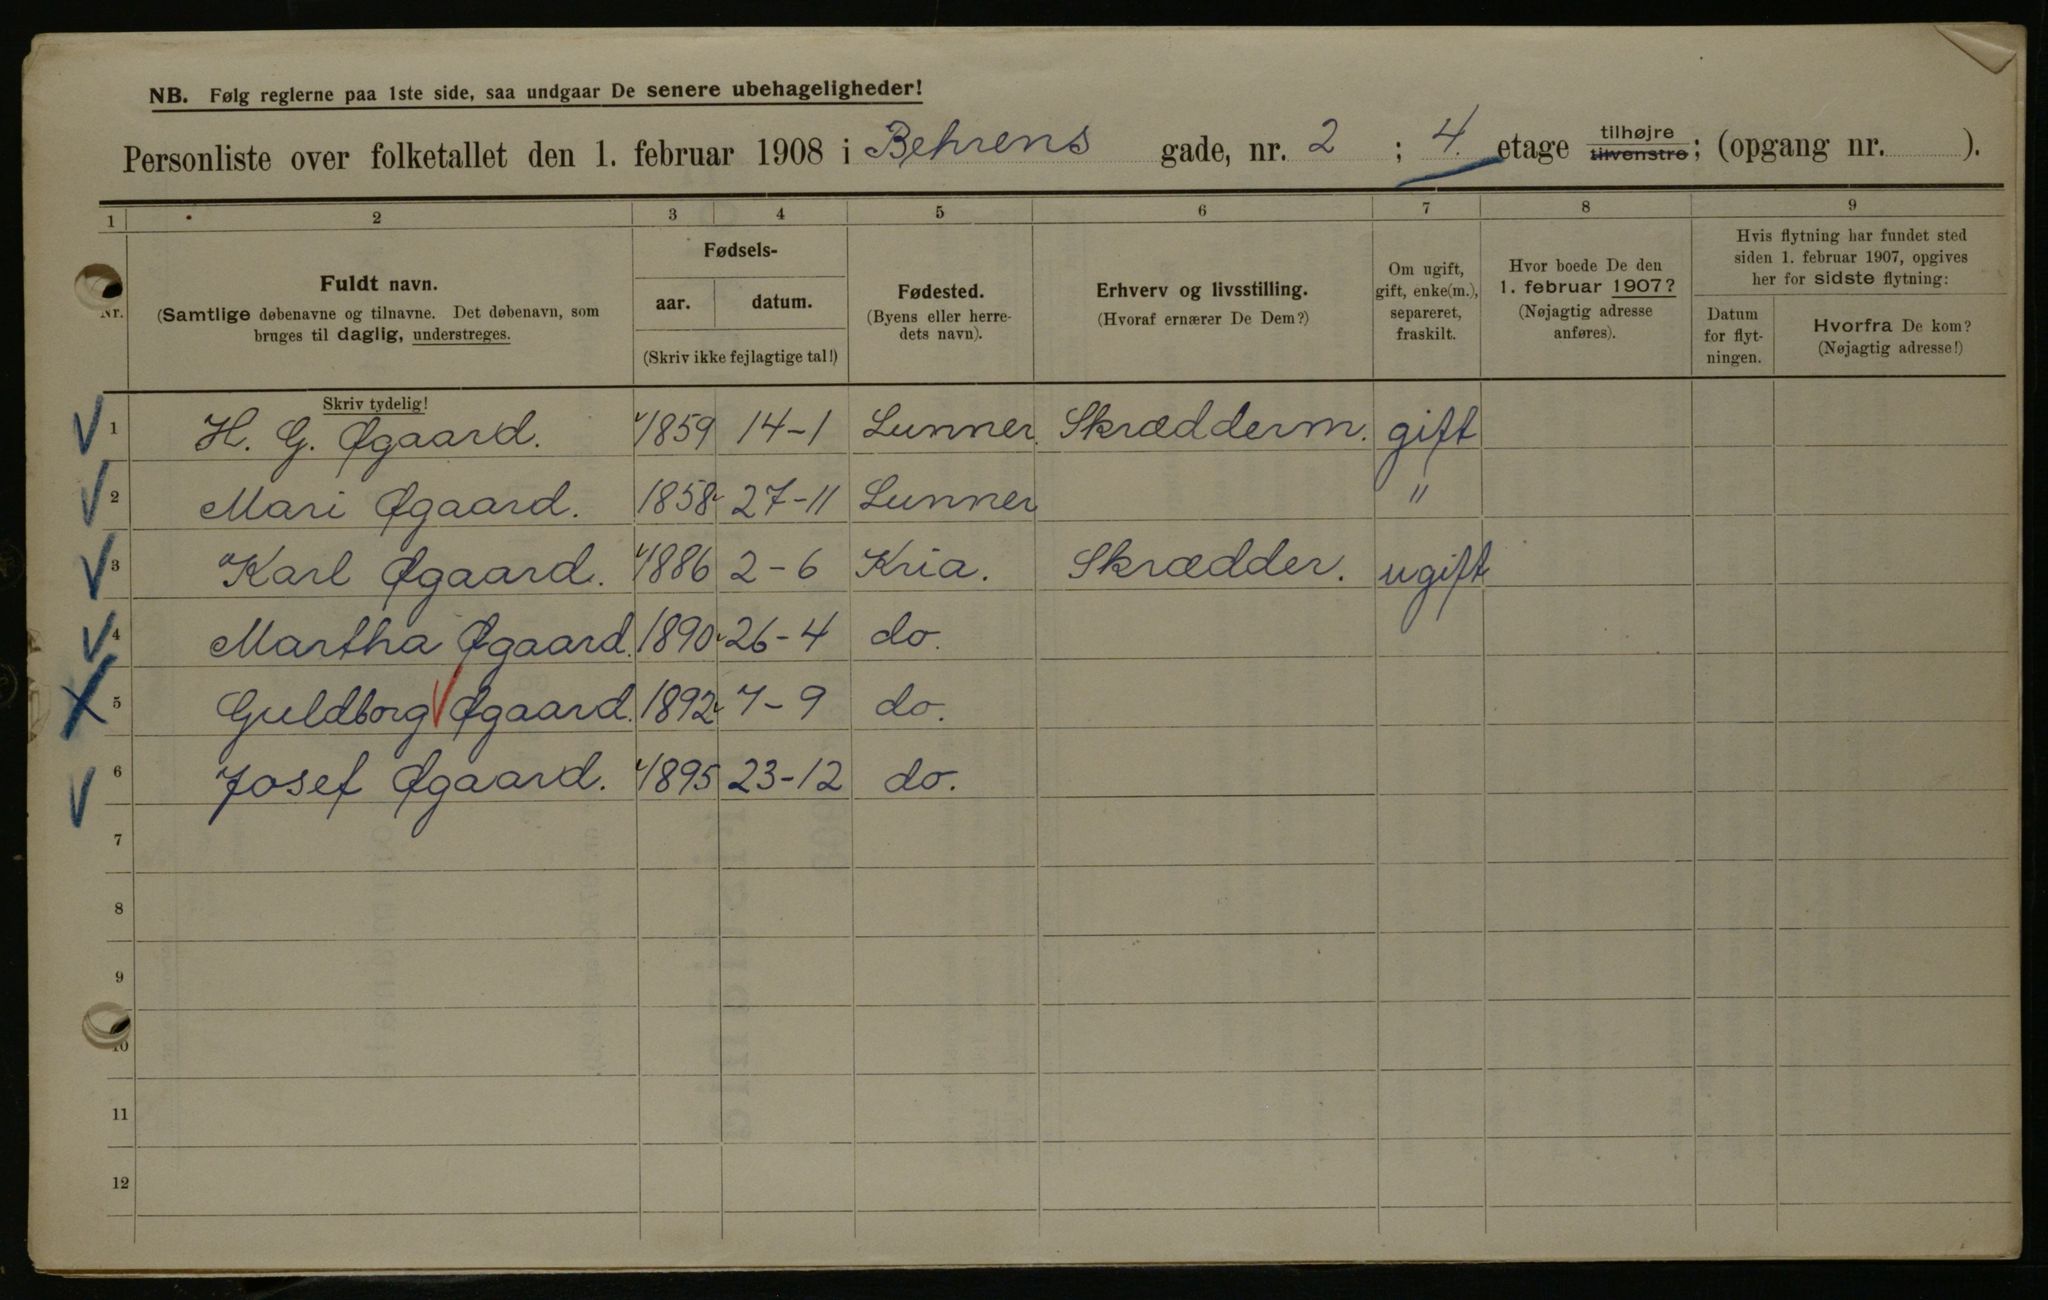 NB. Følg reglerne paa 1ste side, saa undgaar De senere ubehageligheder!
Personliste over folketallet den 1. februar 1908 i Behrens gade, nr. 2 ; 4. etage tilhøjre tilvenstre; (opgang nr. ).
1 2 3 4 5 6 7 8 9
Nr.
Fuldt navn.
(Samtlige døbenavne og tilnavne. Det døbenavn, som
bruges til daglig, understreges.
Fødsels-
aar. datum.
(Skriv ikke fejlagtige tal!)
Fødested.
(Byens eller herre-
dets navn).
Erhverv og livsstilling.
(Hvoraf ernærer De Dem?)
Om ugift,
gift, enke(m.),
separeret,
fraskilt.
Hvor boede De den
1. februar 1907?
(Nøjagtig adresse
anføres).
Hvis flytning har fundet sted
siden 1. februar 1907, opgives
her for sidste flytning:
Datum
for flyt-
ningen.
Hvorfra De kom?
(Nøjagtig adresse!)
Skriv tydelig!
1 H. G. Øgaard. 1859 14-1 Lunner. Skrædderm. gift
2 Mari Øgaard. 1858 27-11 Lunner "
3 Karl Øgaard. 1886 2-6 Kria. Skrædder. ugift
4 Martha Øgaard. 1890 26-4 do.
5 Guldborg Øgaard. 1892 7-9 do.
6 Josef Øgaard. 1895 23-12 do.
7
8
9
10
11
12